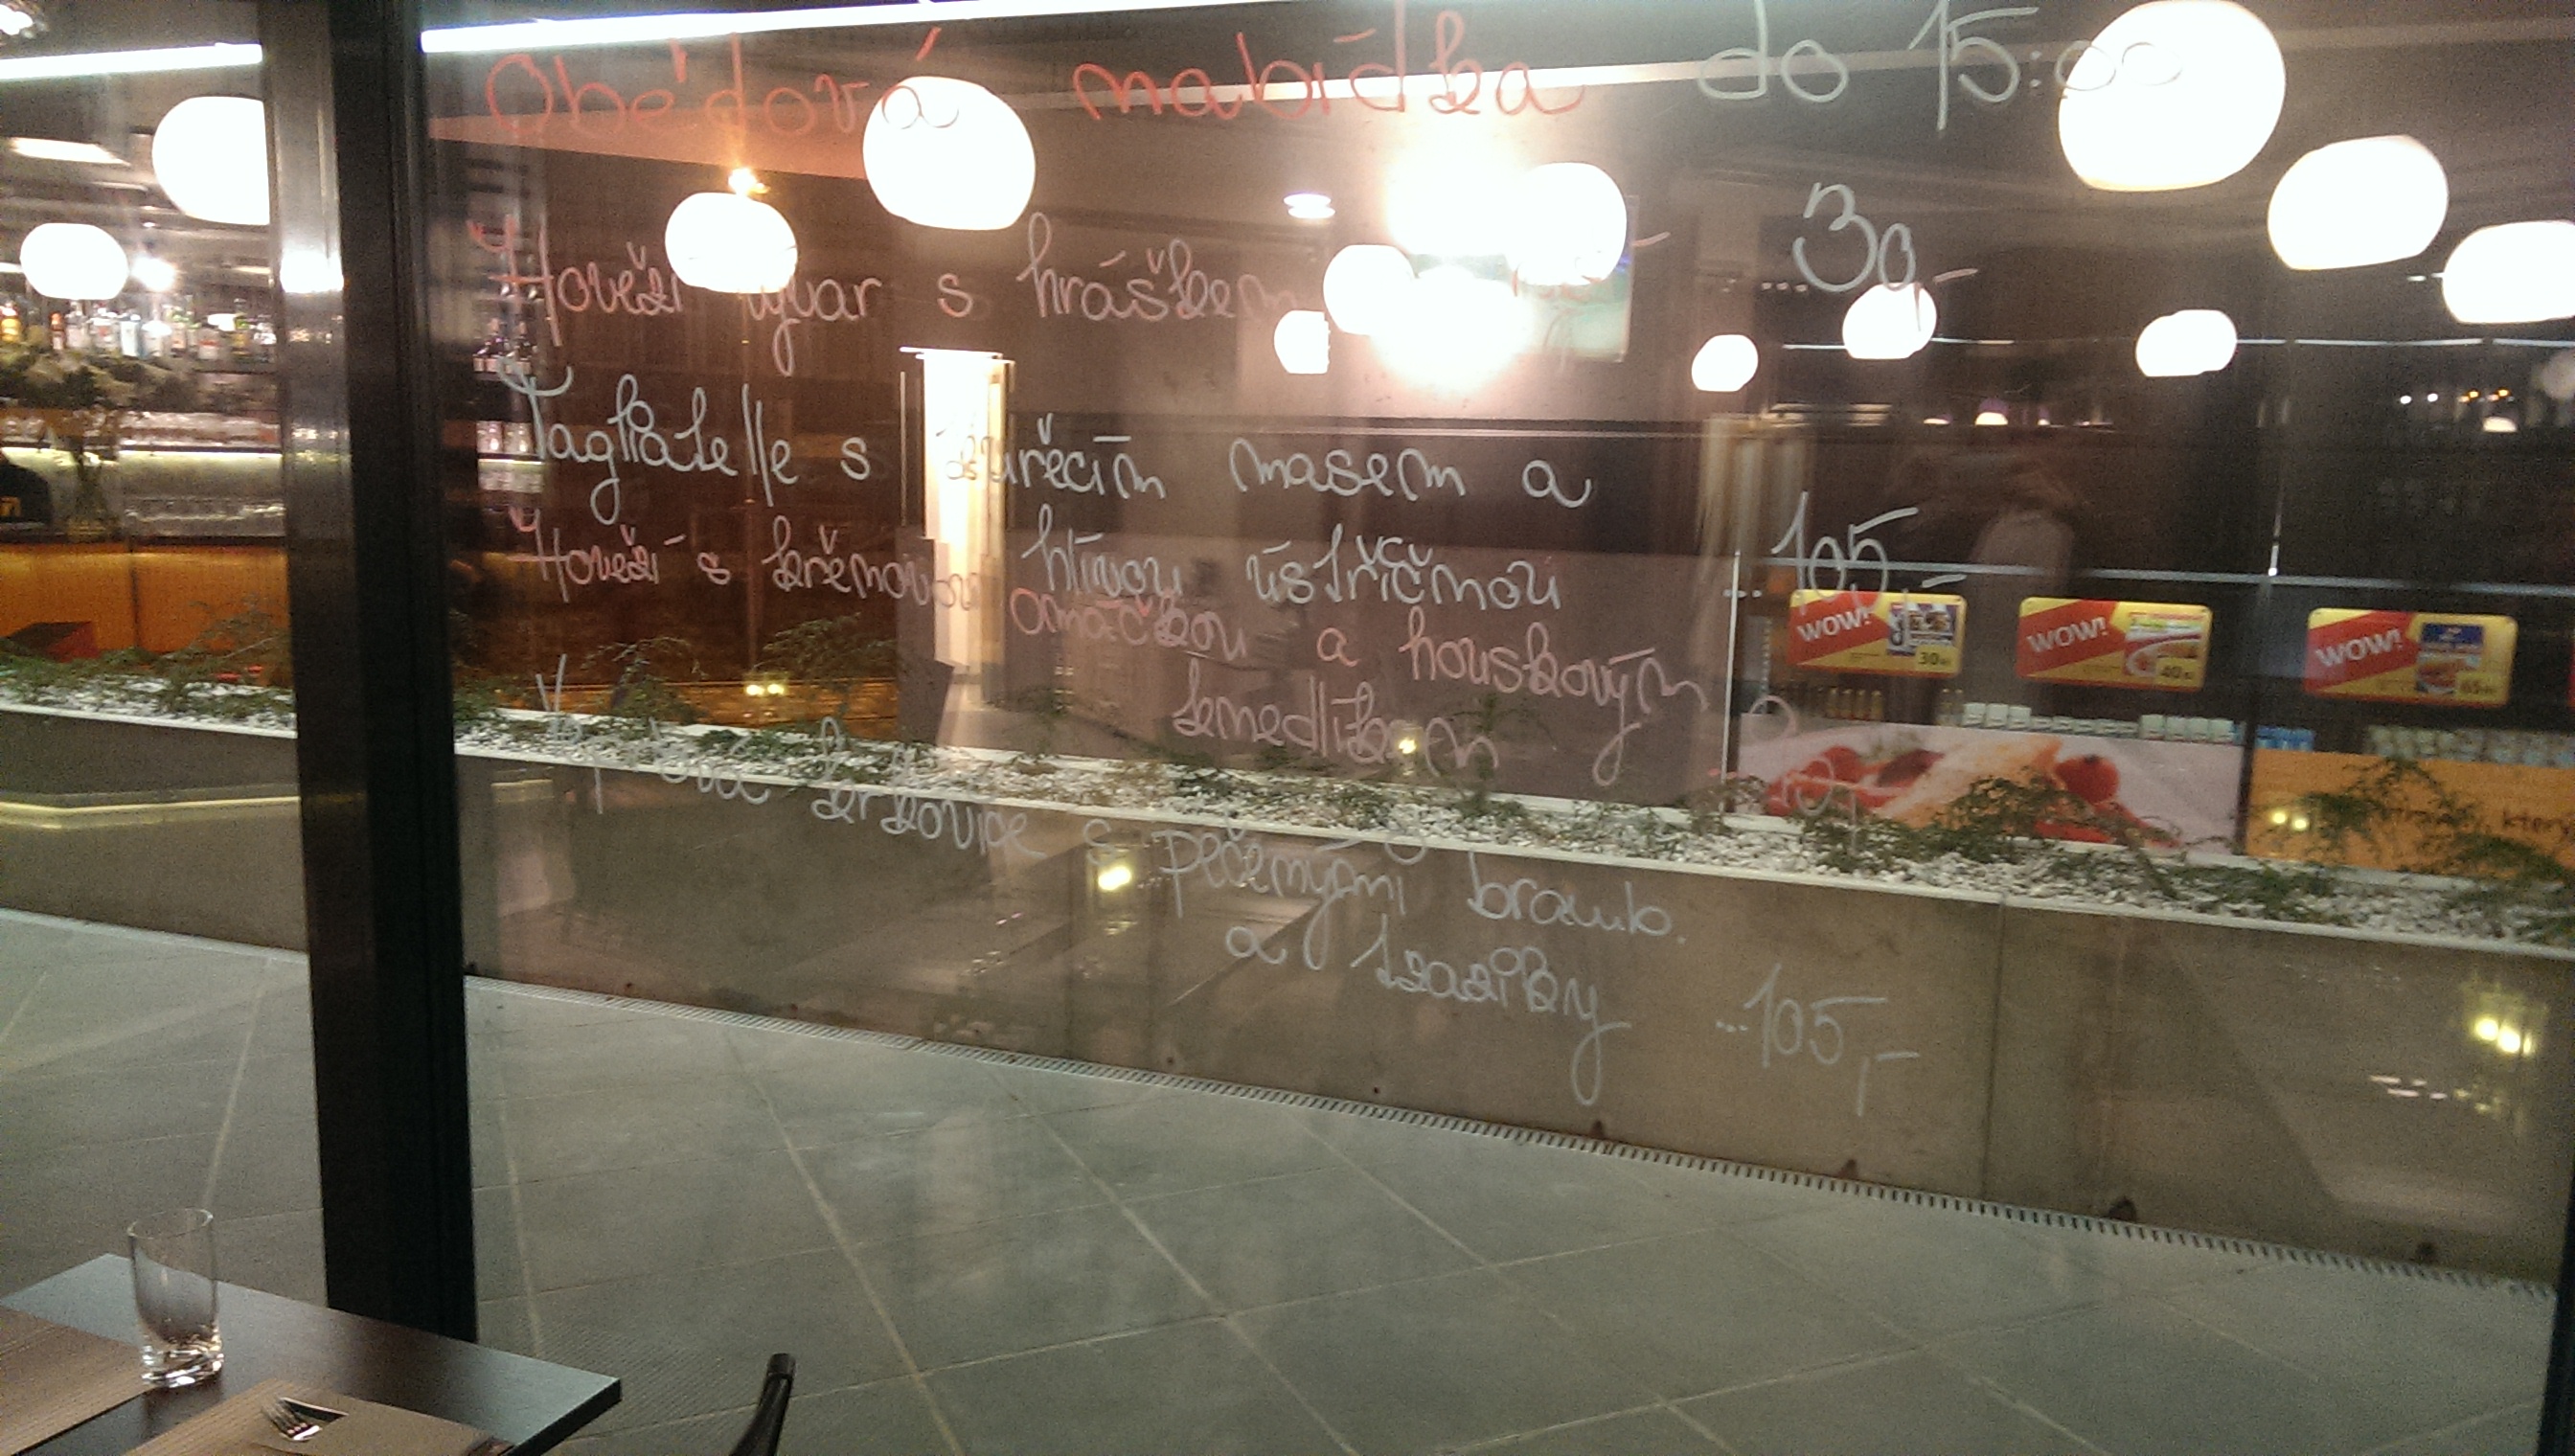 Obědová nabídka do 15:00
Hovězí vývar s hráškem ...30,-
Tagliatelle s kuřecím masem a
hlívou ústřičnou ...105,-
Hovězí s křenovou
omáčkou a houskovým
knedlíkem
Vepřová krkovice s pečenými bramb.
a tzaziky ...105,-
WOW! 30
WOW! 40
WOW! 65